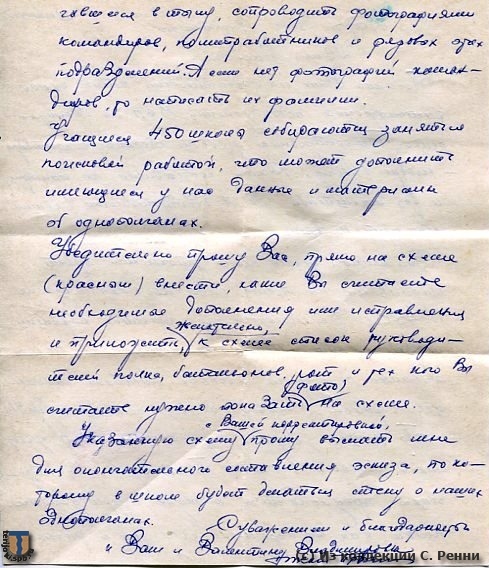 гавшиеся в тылу, сопроводить фотографиями
командиров, политработников и рядовых этих
подразделений. А если нет фотографий коман-
диров, то написать их фамилии.
Учащиеся 450 школы собираются заняться
поисковой работой, что может дополнить
имеющиеся у нас данные и материалы
об однополчанах.
Убедительно прошу Вас, прямо на схеме
(красным) внести, какие Вы считаете
необходимые дополнения или исправления
желательно,
и приложить, к схеме список руководи-
телей полка, батальонов, рот и тех кого Вы
(фото)
считаете нужно показать на схеме.
с Вашей корректировкой,
Указанную схему прошу выслать мне
для окончательного составления эскиза, по ко-
торому в школе будут делать стену о наших
однополчанах.
С уважением и благодарностью
к Вам и Валентину Владимировичу
(c) Из коллекции С. Ренни